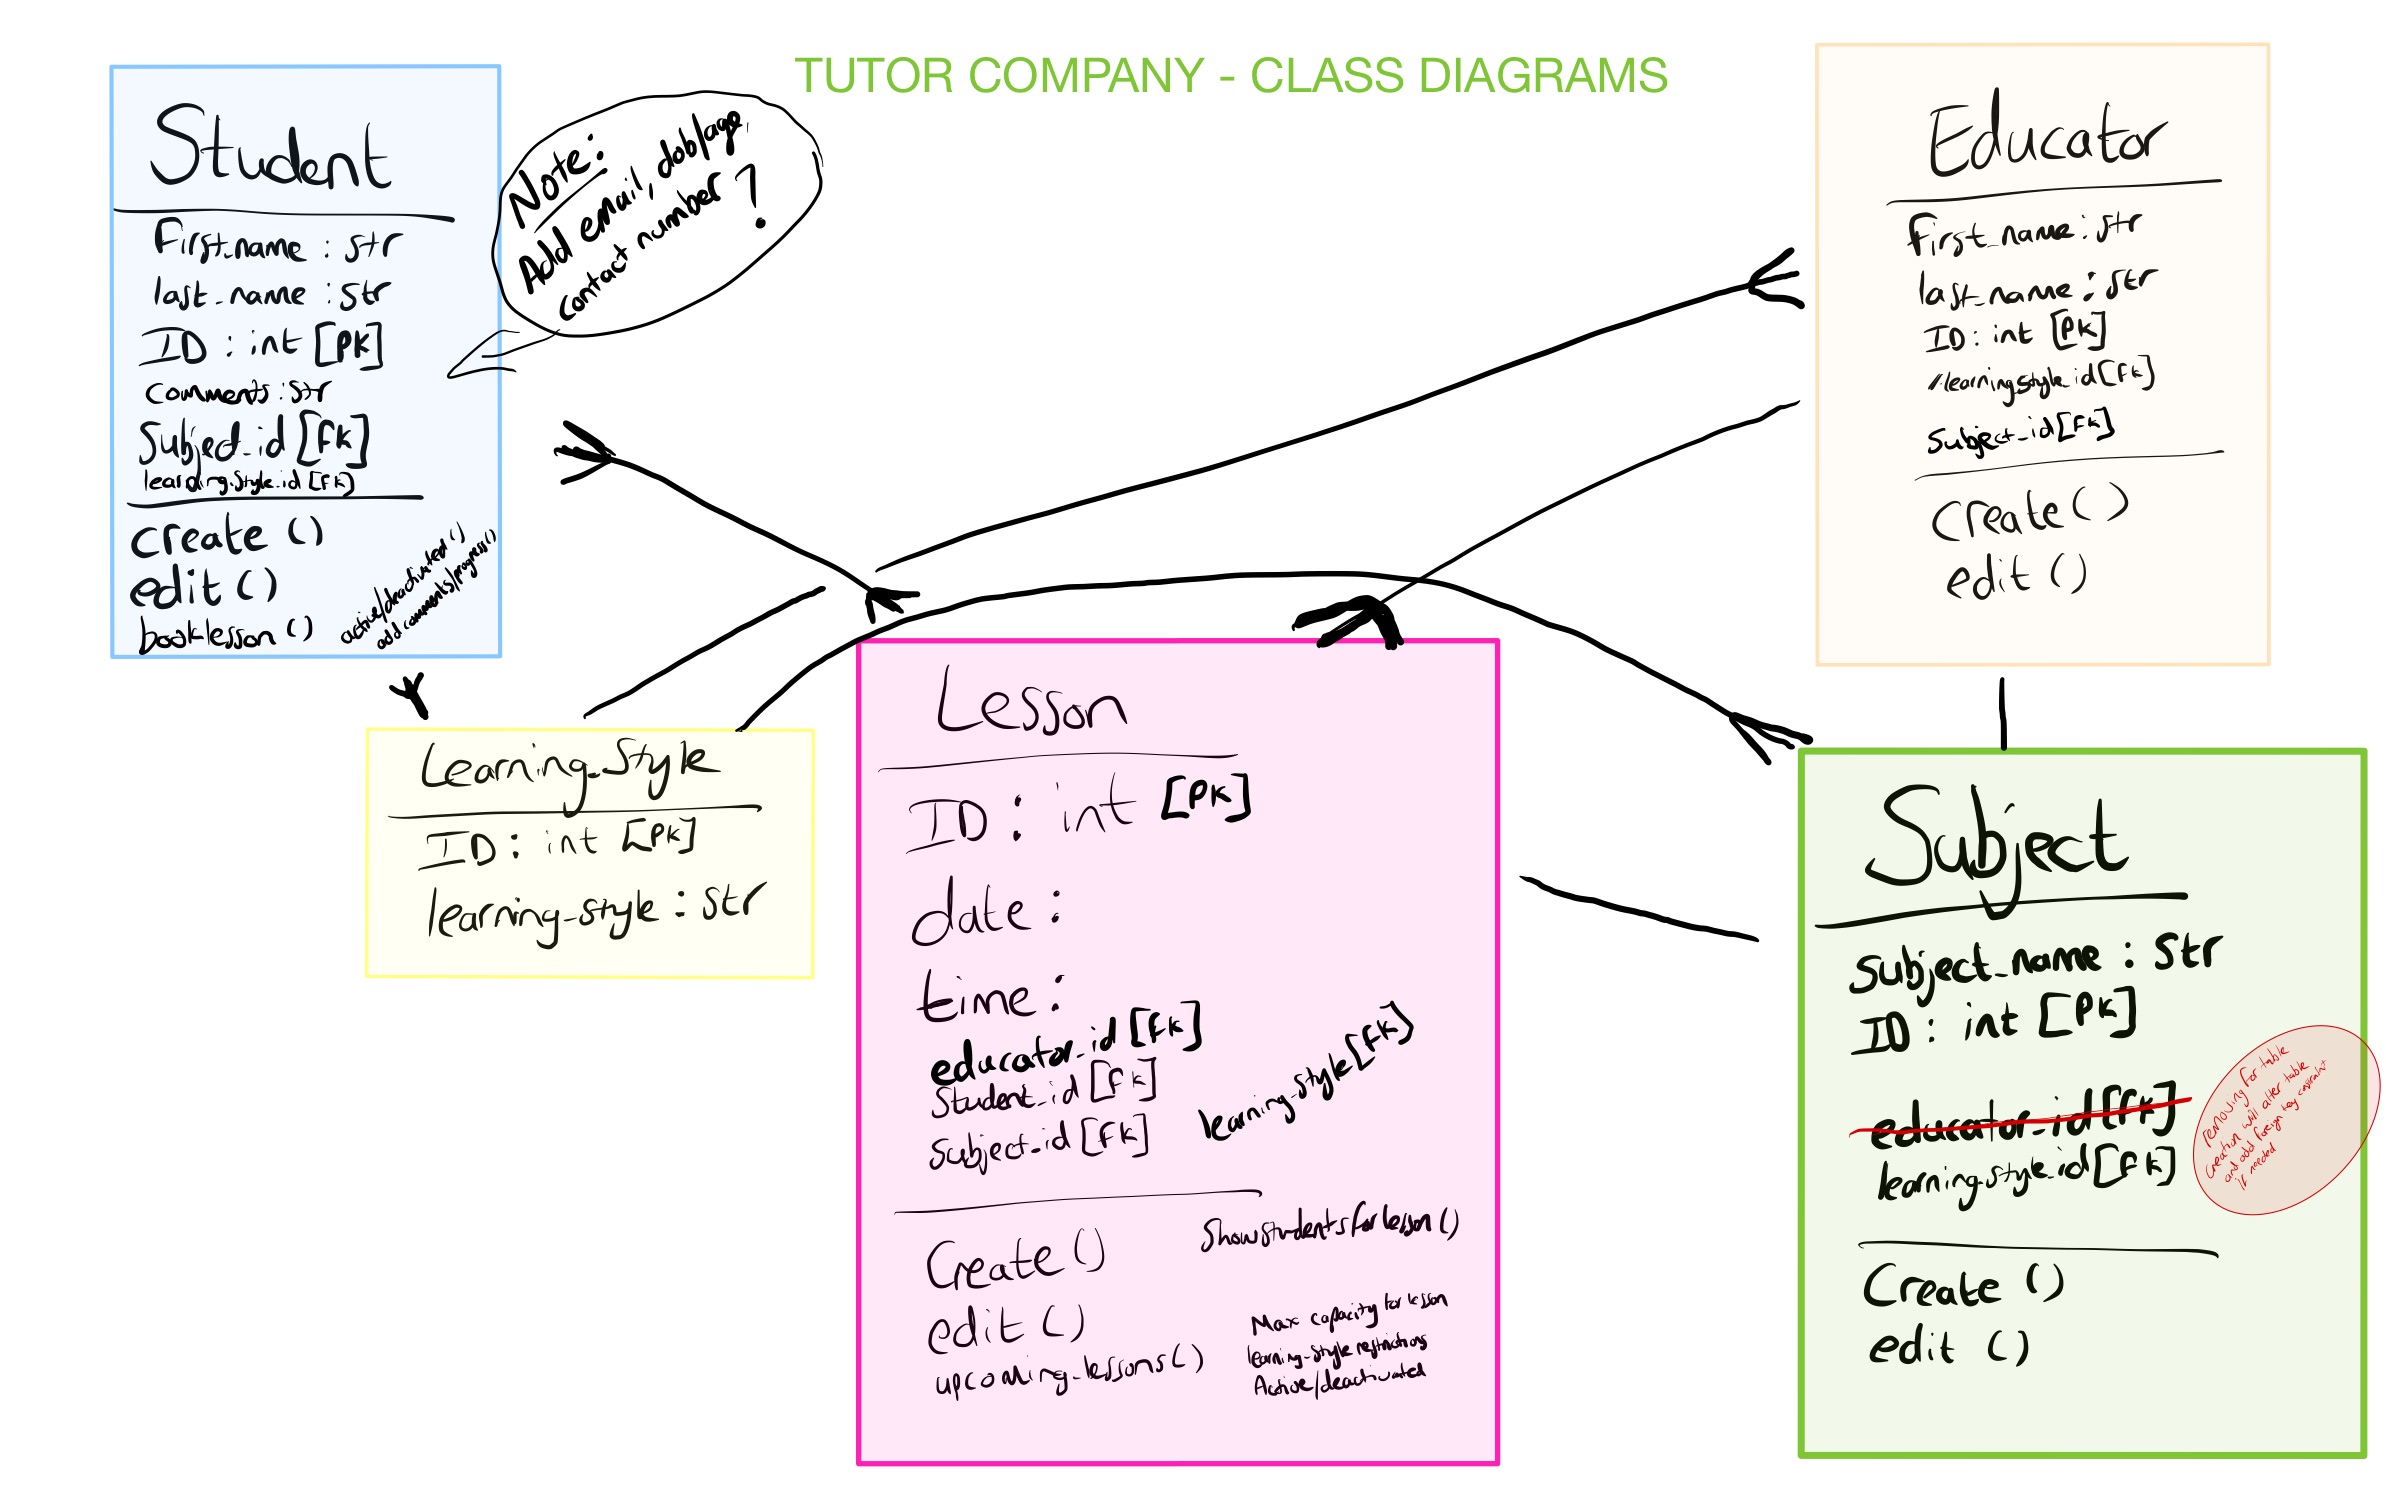 TUTOR COMPANY - CLASS DIAGRAMS
Student
First_name : str
last_name : str
ID : int [PK]
comments : str
Subject_id [FK]
learning_style_id [FK]
create ()
edit ()
booklesson ()
active/deactivated ()
add comments/progress ()
Note:
Add email, dob/age,
contact number ?
Educator
first_name : str
last_name : str
ID : int [PK]
learning_style_id [FK]
Subject_id [FK]
Create ()
edit ()
Learning_Style
ID : int [PK]
learning_style : str
Lesson
ID : int [PK]
date :
time :
educator_id [FK]
Student_id [FK]
Subject_id [FK]
learning_style [FK]
Create ()
edit ()
upcoming_lessons ()
Showstudentsforlesson ()
Max capacity for lesson
learning_style restrictions
Active/deactivated
Subject
Subject_name : Str
ID : int [PK]
educator_id [FK]
learning_style_id [FK]
Create ()
edit ()
removing for table
creation will alter table
and add foreign key constraint
if needed